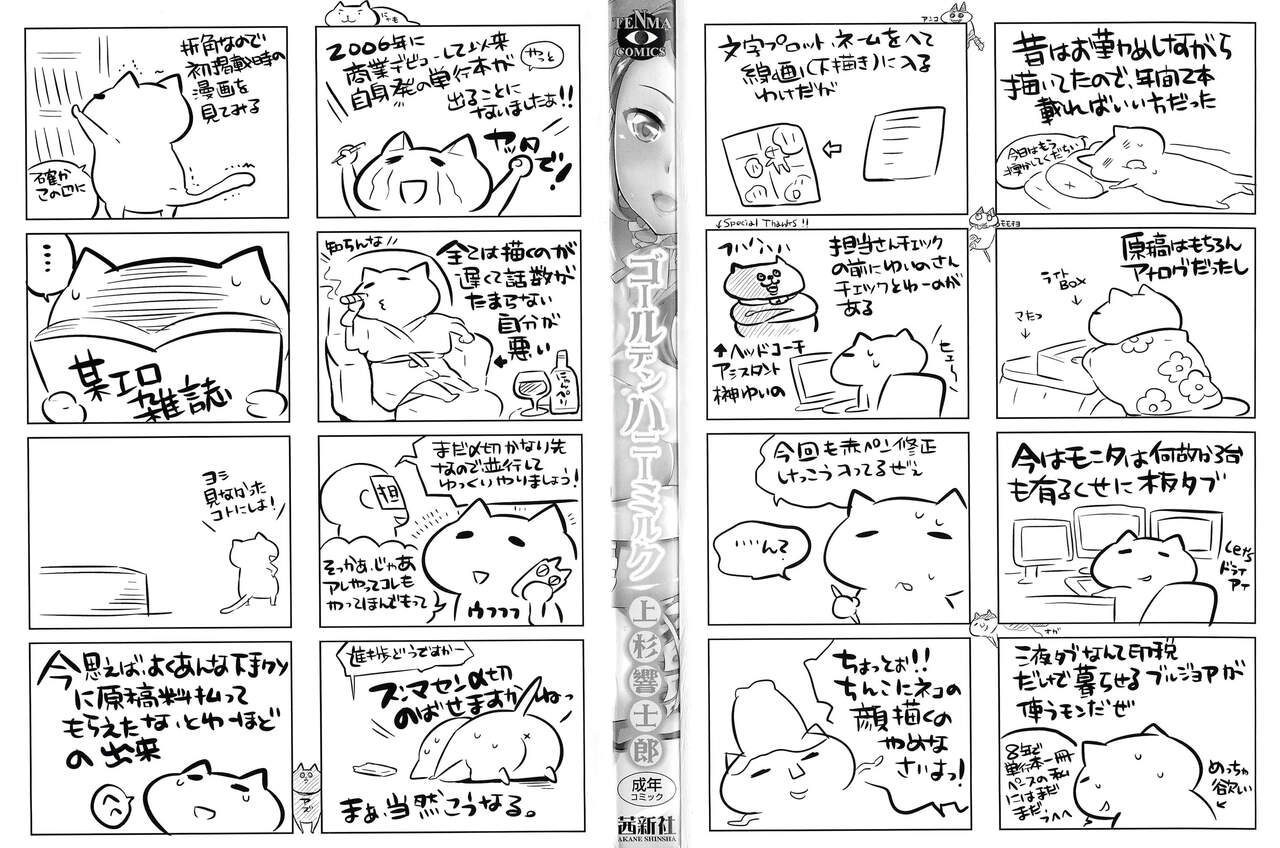 にゃも
2006年に
商業デビューして以来
やっと
自身発の単行本が
出ることに
なりましたぁ!!
ヤッタ
で!
知らんな
全ては描くのが
遅くて話数が
たまらない
自分が
悪い
にゃんぺり
まだ〆切かなり先
なので並行して
ゆっくりやりましょう!
担
そっかぁ、じゃぁ
アレやってコレも
やってほんでもって
ウフフフ
進捗どうですかー
ズ・マセン〆切
のばせますかねっ
まぁ、当然こうなる。
折角なので
初掲載時の
漫画を
見てみる
確か
この辺に
…
某エロ
雑誌
ヨシ
見なかった
コトにしよ!
今思えば、よくあんな下手クソ
に原稿料払って
もらえたな、いとわーほど
の出来
へへ
アズ
TENMA
COMICS
ゴールデンハニーミルク
上杉響士郎
成年
コミック
茜新社
AKANE SHINSHA
アニコ
昔はお勤めしながら
描いてたので、年間2本
載ればいい方だった
今日はもう
寝かしてくだちい
モモチヨ
原稿はもちろん
アナログだったし
ライト
BOX
マたっ
今はモニタは何故か3台
も有るくせに板タブ
Let's
ドライ
アイ
さが
液タブなんて印税
だけで暮らせるブルジョアが
使うモンだぜ
8年で
単行本一冊
ペースの私
にはまだ
まだっへへ
めっちゃ
欲い
文字プロット、ネームをへて
線画(下描き)に入る
わけだが
↓Special Thanks!!
担当さんチェック
の前にゆいのさん
チェックとゆーのが
ある
↑ヘッドコーチ
アシスタント
榊ゆいの
ヒュ〜
今回も赤ペン修正
けっこう入ってるぜぇ
……んで
ちょっとぉ!!
ちんこにネコの
顔描くの
やめな
さいよっ!